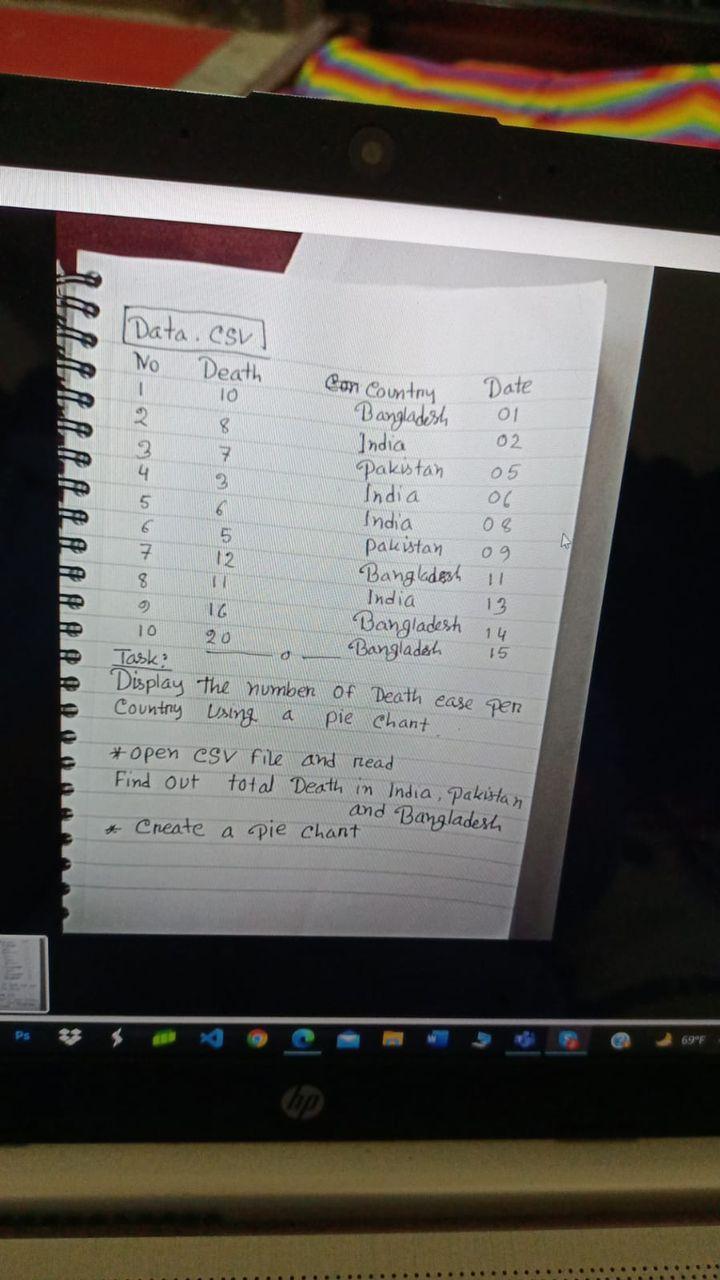 Data.CSV
No Death Con Country Date
1 10 Bangladesh 01
2 8 India 02
3 7 Pakistan 05
4 3 India 06
5 6 India 08
6 5 Pakistan 09
7 12 Bangladesh 11
8 11 India 13
9 16 Bangladesh 14
10 20 Bangladesh 15
Task:
Display the number of Death case per
Country using a pie chart
* open CSV file and read
Find out total Death in India, Pakistan
and Bangladesh
* Create a pie chart
Ps
W
69°F
hp